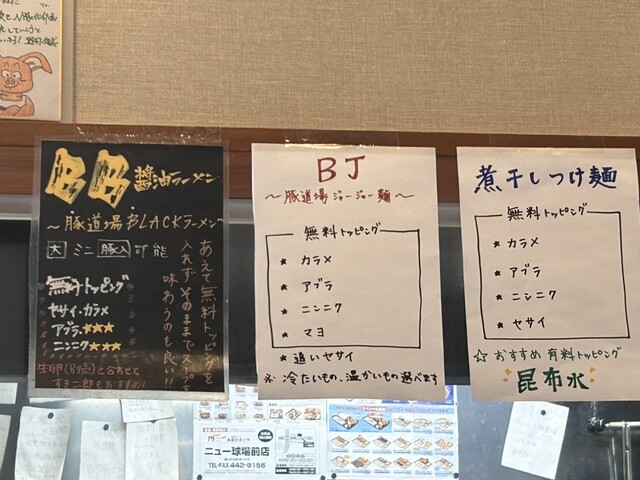 BB 醤油ラーメン
〜豚道場BLACKラーメン〜
大 ミニ 豚入 可能
無料トッピング
ヤサイ・カラメ
アブラ ★★★
ニンニク ★★★
あえて無料トッピングを
入れずそのままでスープを
味わうのも良い!!
生卵(別売)と合わせて
すき二郎もおすすめ!
BJ
〜豚道場ジャージャー麺〜
無料トッピング
★ カラメ
★ アブラ
★ ニンニク
★ マヨ
★追いヤサイ
※ 冷たいもの、温かいもの選べます
煮干しつけ麺
無料トッピング
★ カラメ
★ アブラ
★ ニンニク
★ ヤサイ
☆おすすめ有料トッピング
昆布水
ニュー球場前店
TEL・FAX.442-9156